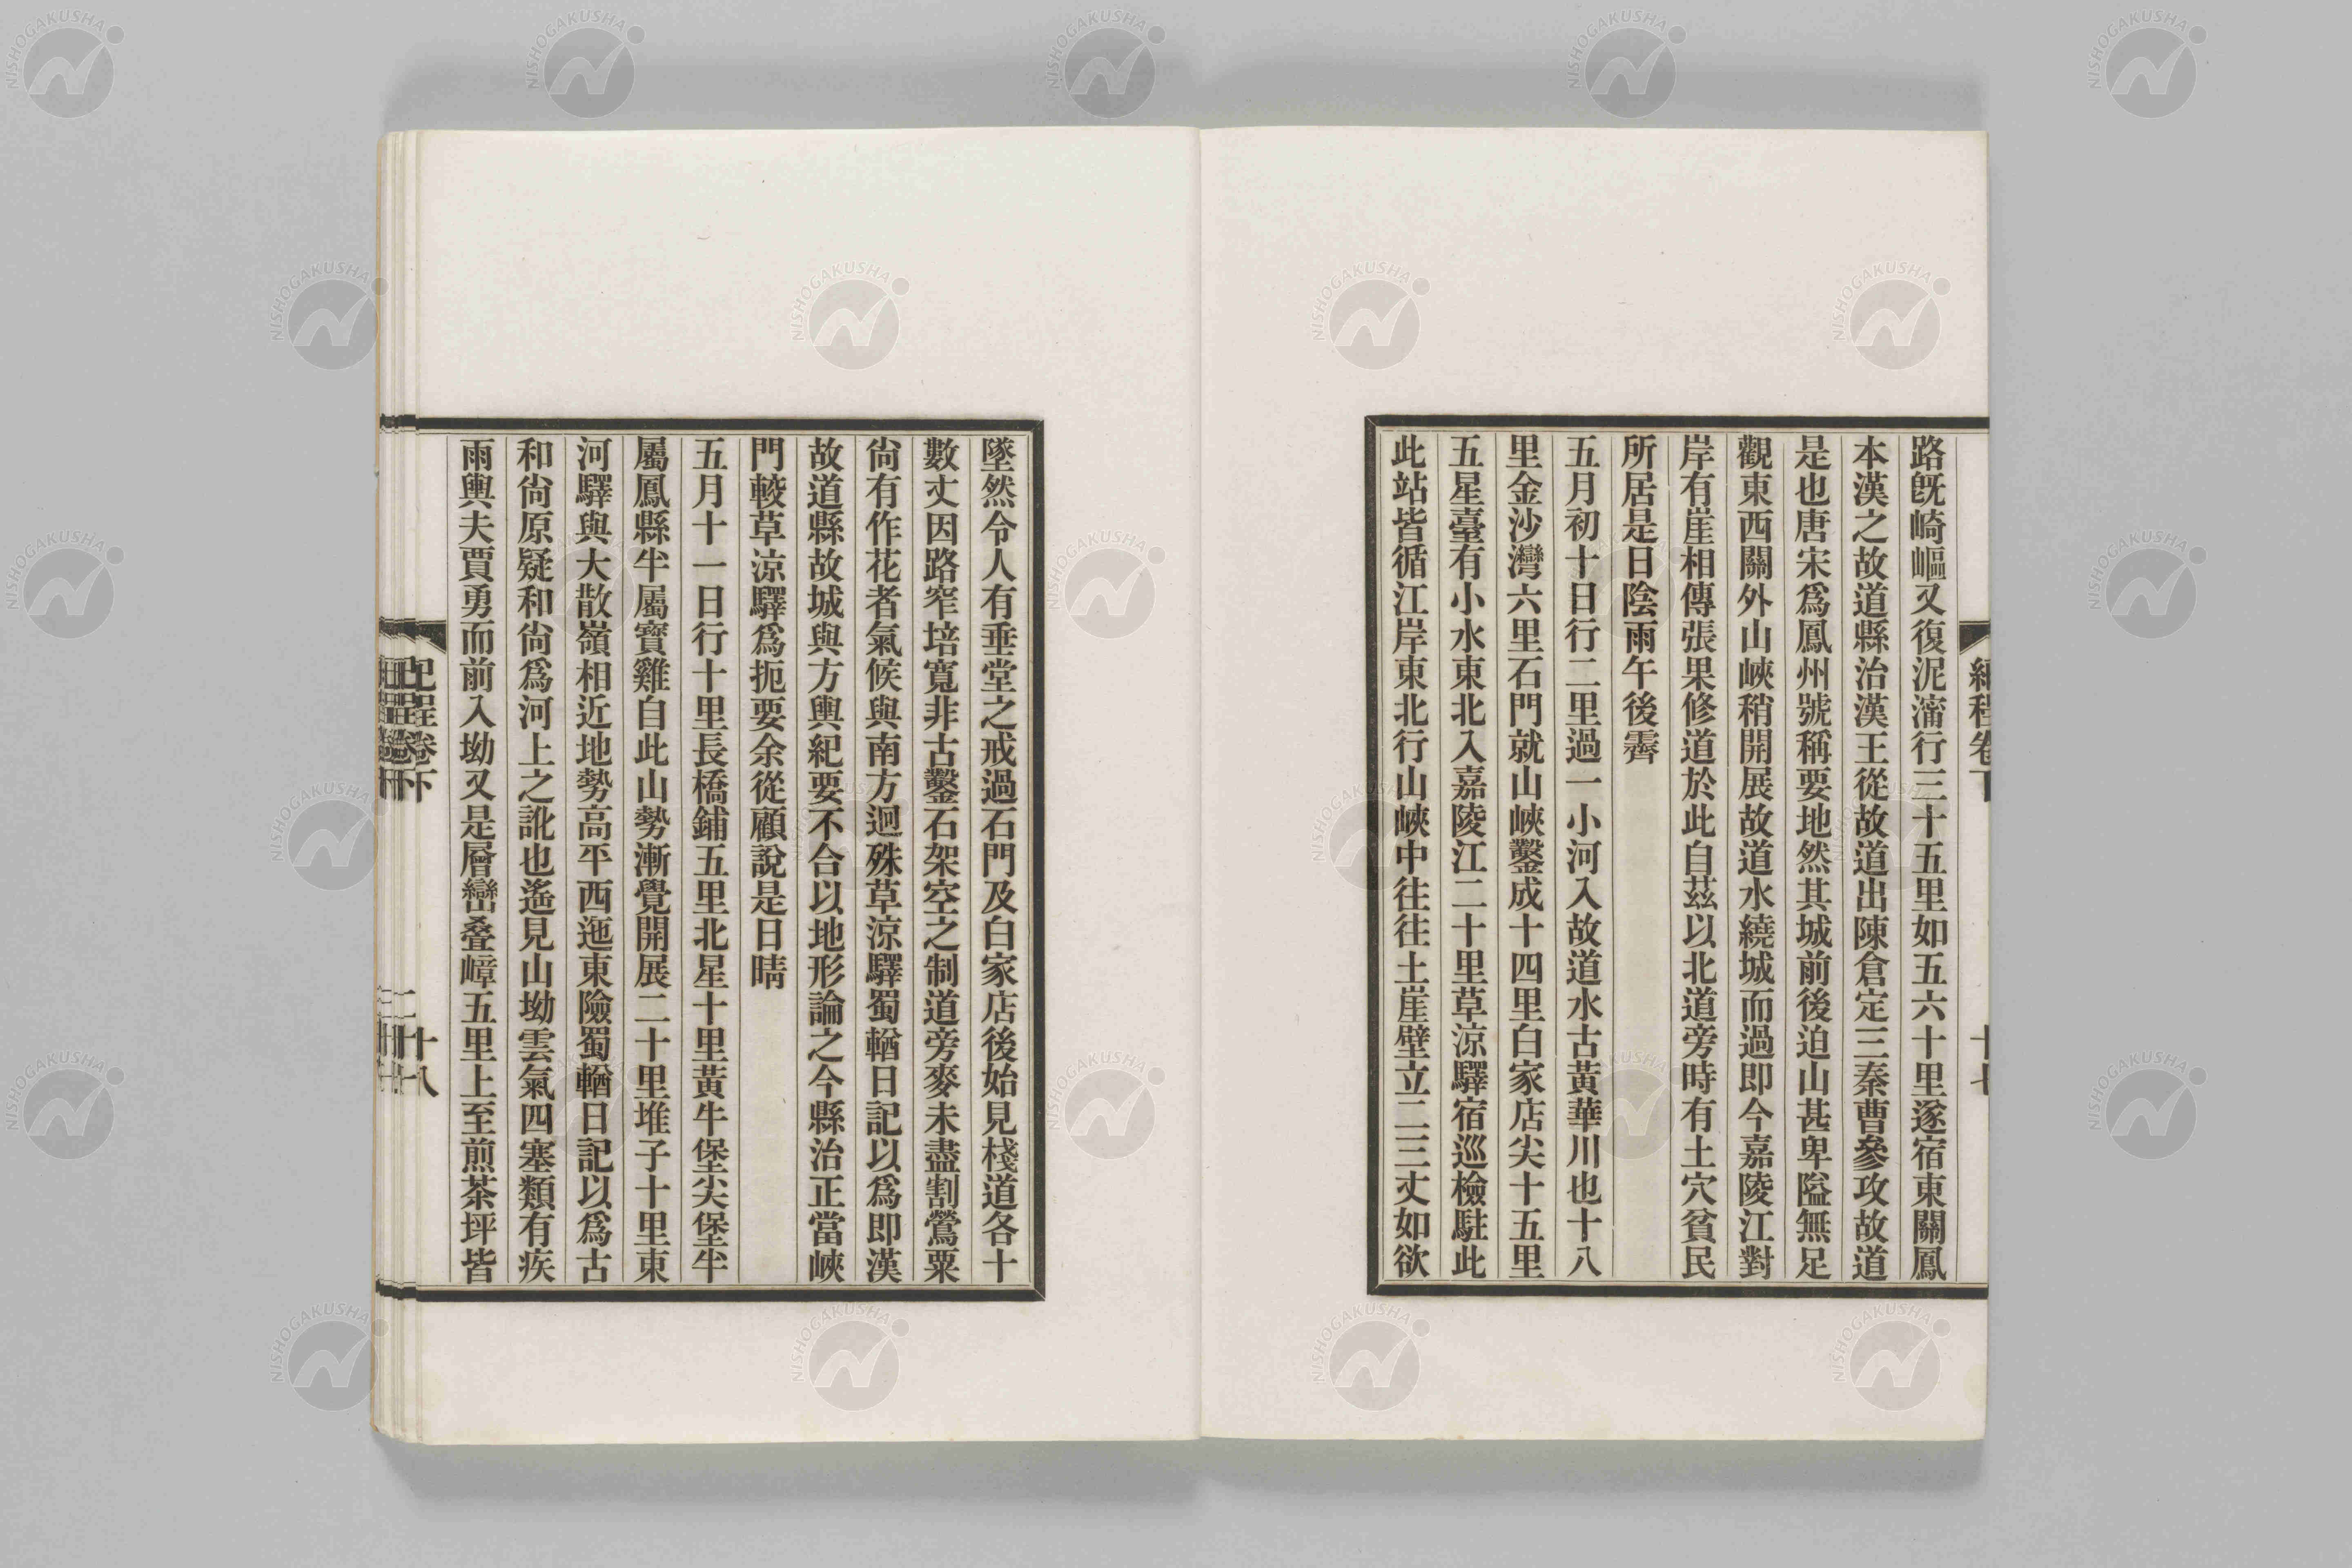 路旣崎嶇又復泥濘行三十五里如五六十里遂宿東關鳳
本漢之故道縣治漢王從故道出陳倉定三秦曹參攻故道
是也唐宋爲鳳州號稱要地然其城前後迫山甚卑隘無足
觀東西關外山峽稍開展故道水繞城而過即今嘉陵江對
岸有崖相傳張果修道於此自茲以北道旁時有土穴貧民
所居是日陰雨午後霽
五月初十日行二里過一小河入故道水古黃華川也十八
里金沙灣六里石門就山峽鑿成十四里白家店尖十五里
五星臺有小水東北入嘉陵江二十里草涼驛宿巡檢駐此
此站皆循江岸東北行山峽中往往土崖壁立二三丈如欲
墜然令人有垂堂之戒過石門及白家店後始見棧道各十
數丈因路窄培寬非古鑿石架空之制道旁麥未盡割鶯粟
尙有作花者氣候與南方迥殊草涼驛蜀輶日記以爲即漢
故道縣故城與方輿紀要不合以地形論之今縣治正當峽
門較草涼驛爲扼要余從顧說是日晴
五月十一日行十里長橋鋪五里北星十里黃牛堡尖堡半
屬鳳縣半屬寶雞自此山勢漸覺開展二十里堆子十里東
河驛與大散嶺相近地勢高平西迤東險蜀輶日記以爲古
和尙原疑和尙爲河上之訛也遙見山坳雲氣四塞類有疾
雨輿夫賈勇而前入坳又是層巒叠嶂五里上至煎茶坪皆
紀程卷下
十八